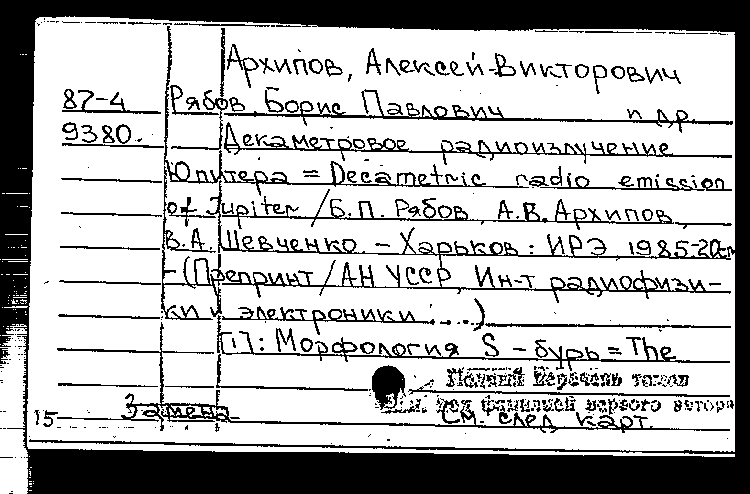 Архипов, Алексей Викторович
87-4 Рябов, Борис Павлович и др.
9380. Декаметровое радиоизлучение
Юпитера = Decametric radio emission
of Jupiter / Б.П. Рябов, А.В. Архипов,
В.А. Шевченко. - Харьков : ИРЭ, 1985-20см
-(Препринт / АН УССР, Ин-т радиофизи-
ки и электроники ; ...)
[1]: Морфология S - бурь = The
Полный перечень томов
см. под фамилией первого автора
15- Замена См. след карт.